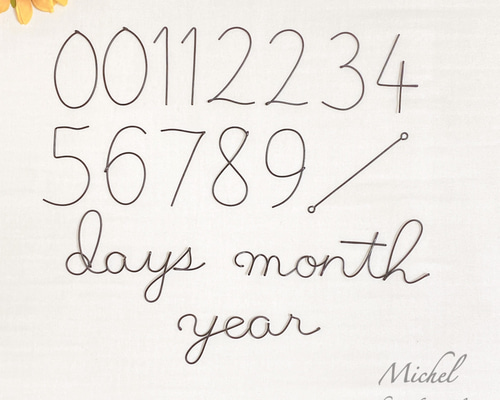 00112234
56789/
days month
year
Michel